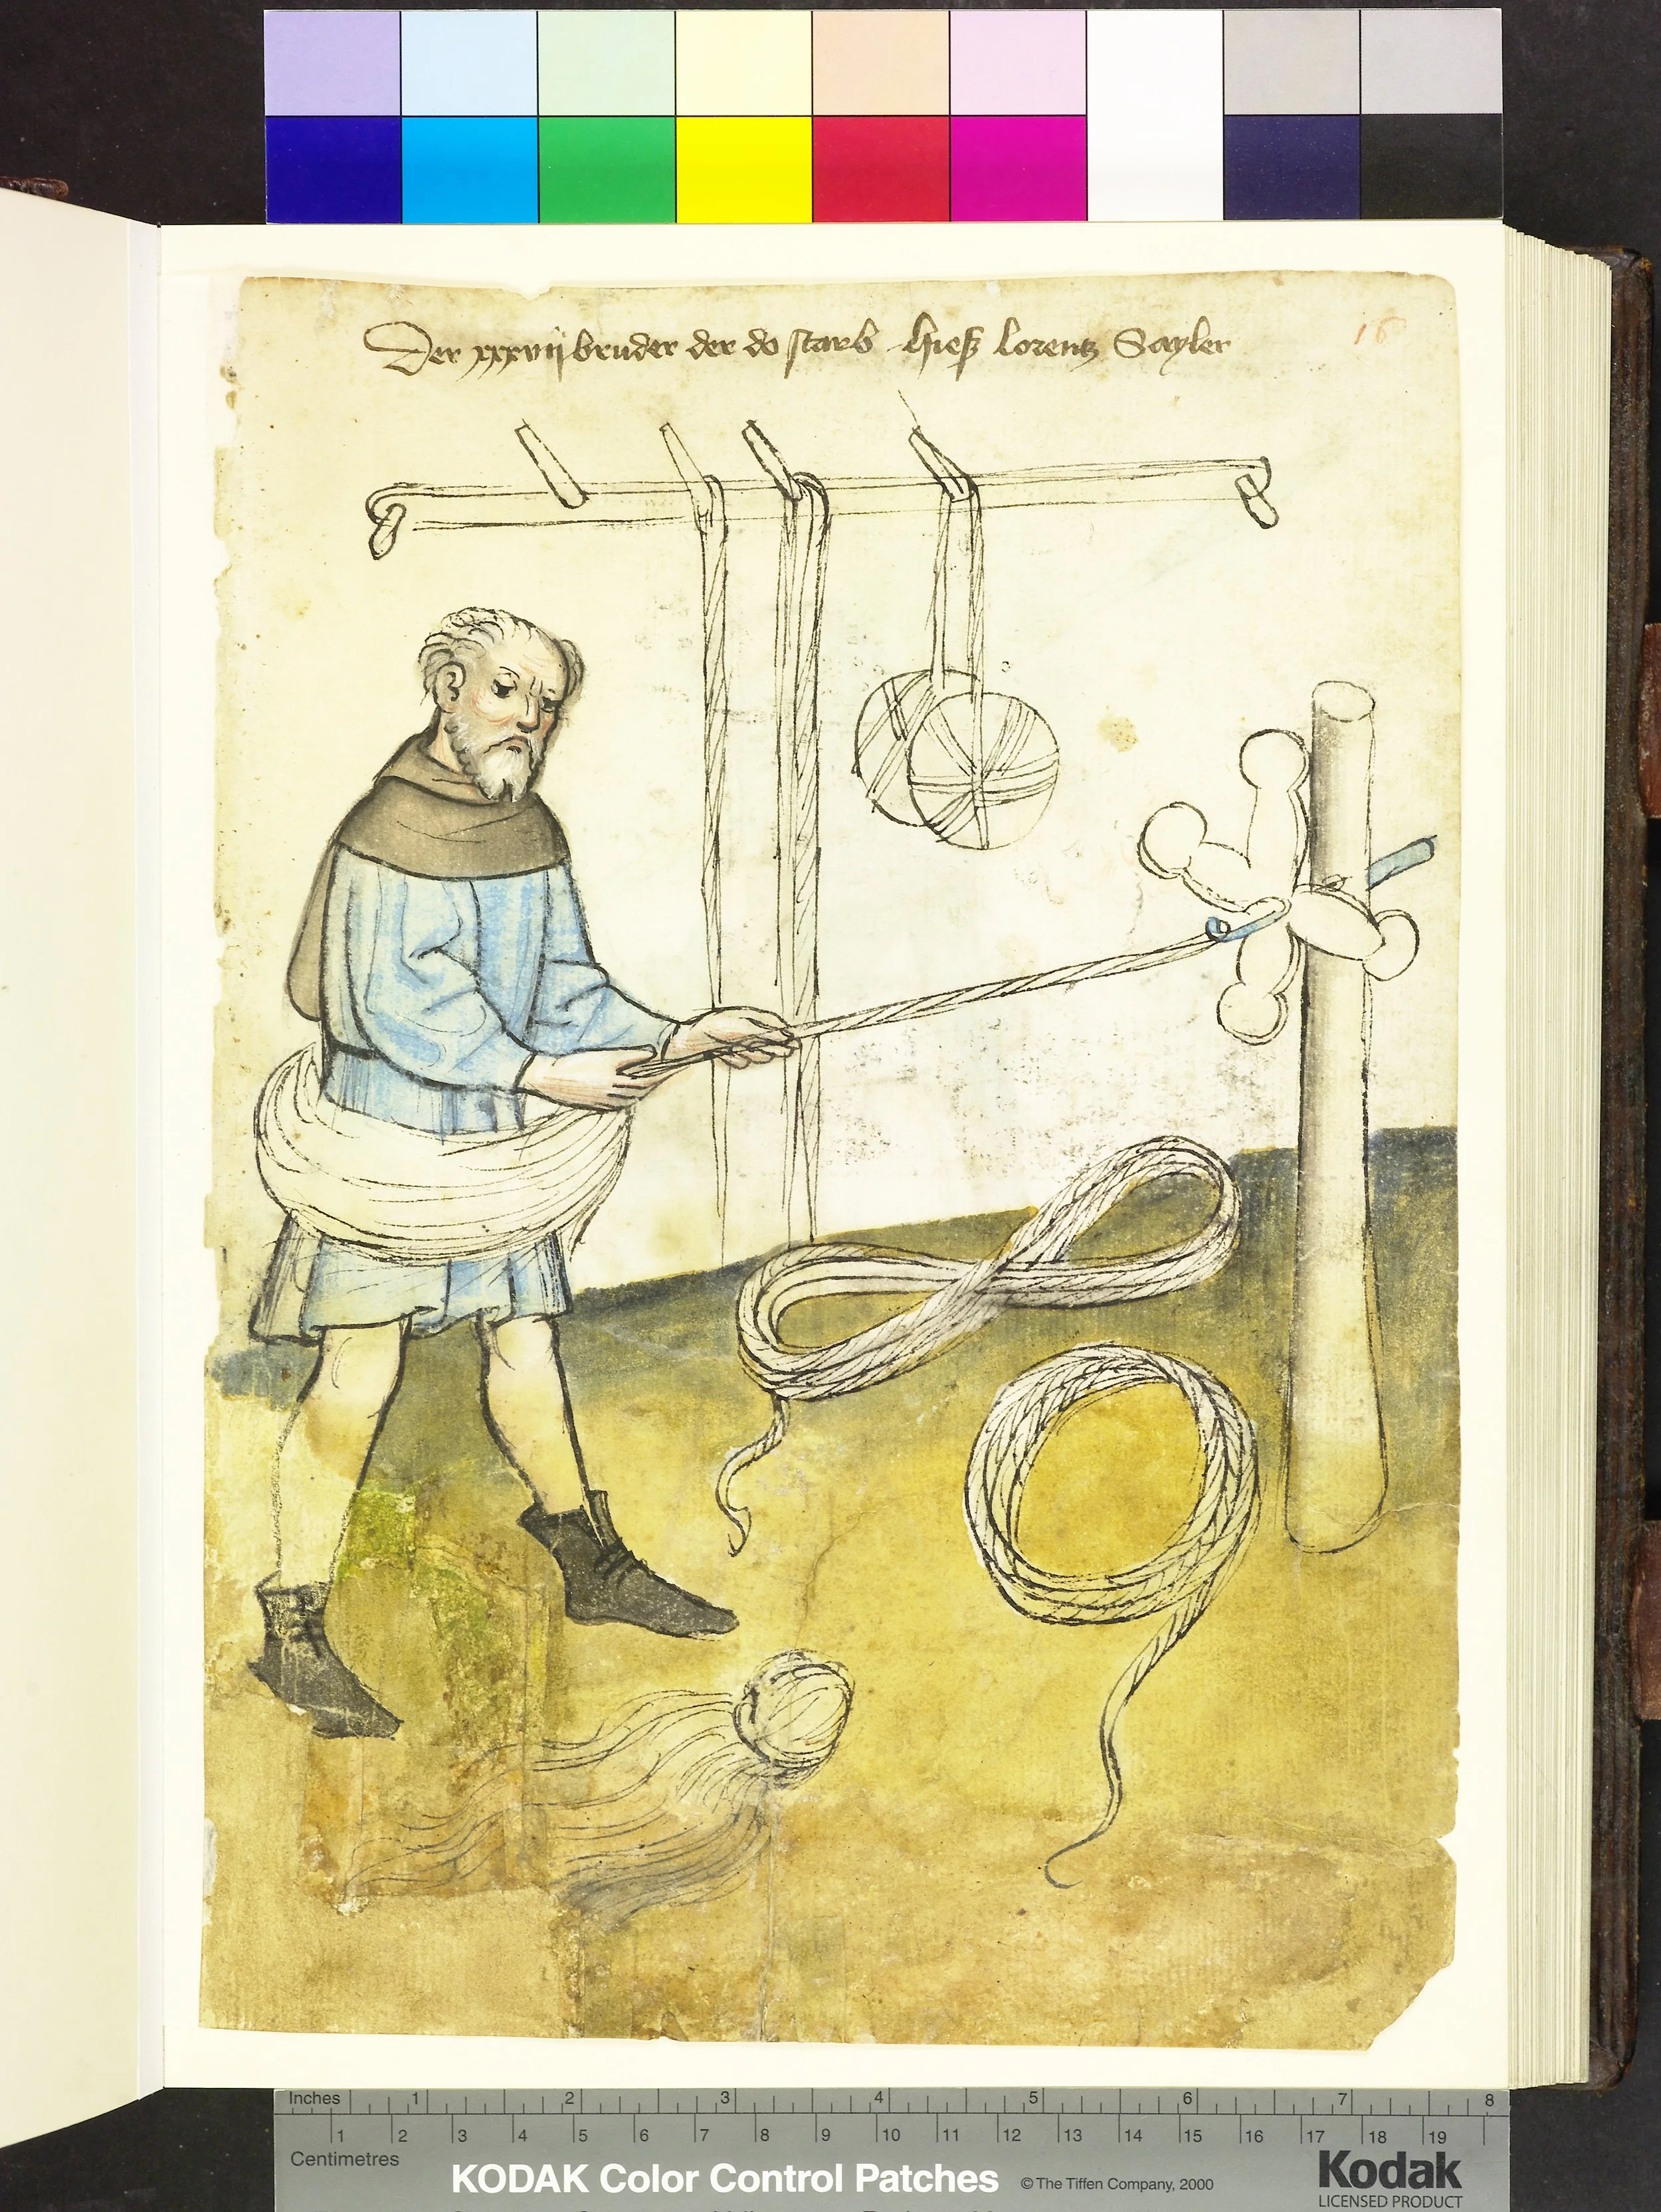 Der xxxvij bruder der do starb hieß lorentz Sayler
16
Inches 1 2 3 4 5 6 7 8
1 2 3 4 5 6 7 8 9 10 11 12 13 14 15 16 17 18 19
Centimetres
KODAK Color Control Patches © The Tiffen Company, 2000 Kodak
LICENSED PRODUCT